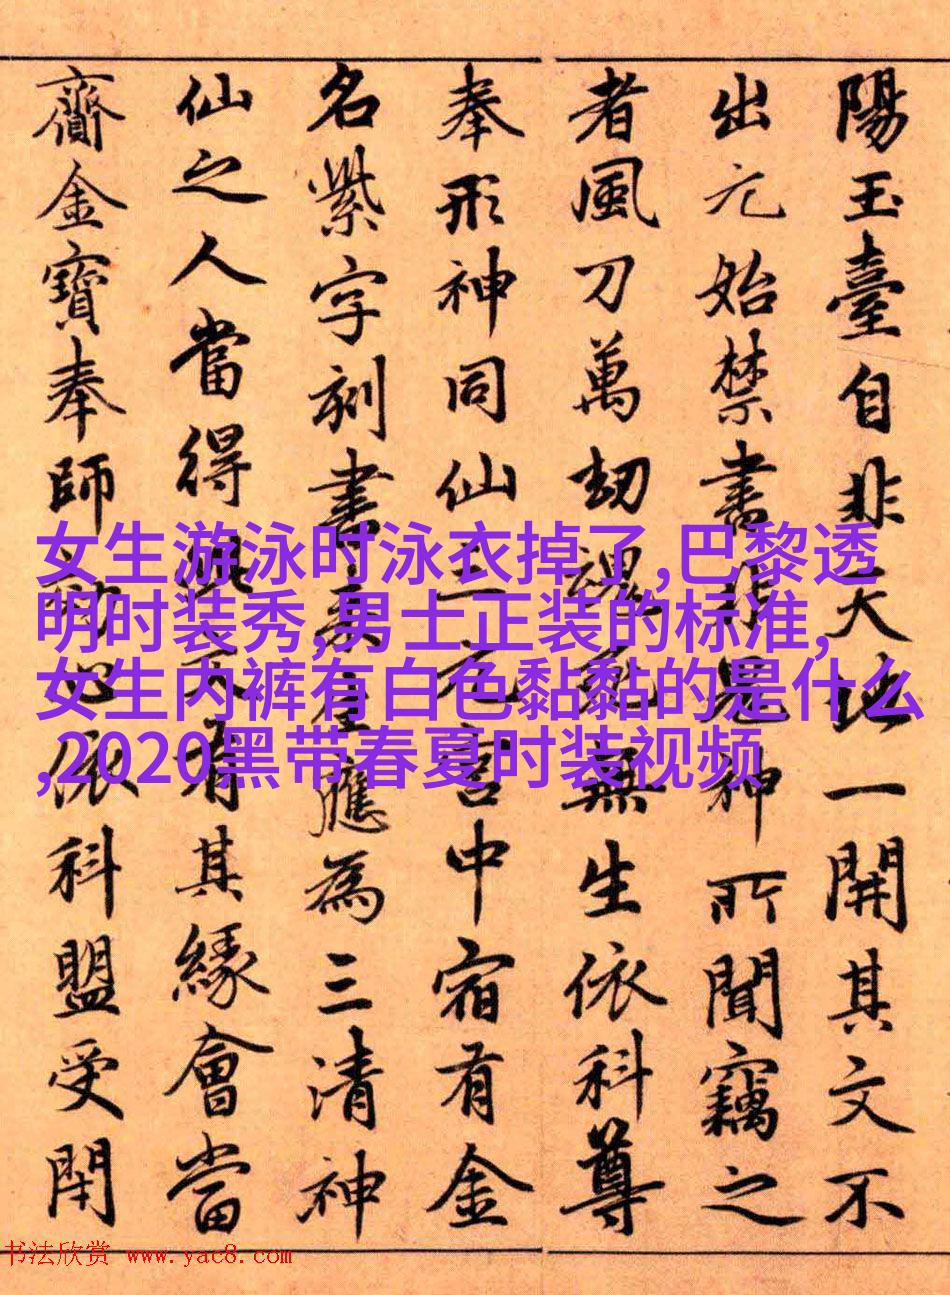 陽玉臺自非天地一開其文不
出元始禁書非鬼神所聞竊之
者風刀萬劫魂死無生依科尊
奉形神同仙三元宮中宿有金
名紫字刻書來全應為三清神
仙之人當得此文有其緣會當
齎金寶奉師効心依科盟受閇
女生游泳时泳衣掉了,巴黎透
明时装秀,男士正装的标准,
女生内裤有白色黏黏的是什么
,2020黑带春夏时装视频
书法欣赏 www.yac8.com